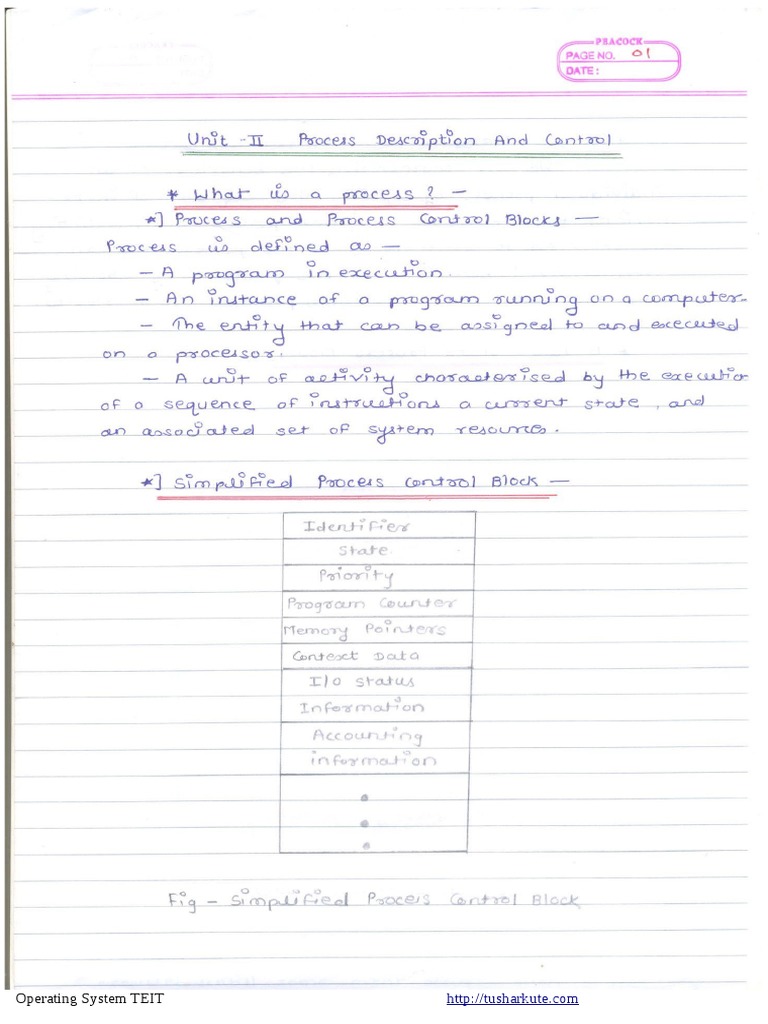 PEACOCK
PAGE NO. 01
DATE:
Unit - II Process Description And Control
* What is a process? —
*] Process and Process Control Blocks —
Process is defined as —
— A program in execution.
— An instance of a program running on a computer.
— The entity that can be assigned to and executed
on a processor.
— A unit of activity characterised by the execution
of a sequence of instructions a current state, and
an associated set of system resources.
*] Simplified Process Control Block —
Identifier
State
Priority
Program Counter
Memory Pointers
Context Data
I/O Status
Information
Accounting
information
Fig - Simplified Process Control Block
Operating System TEIT
http://tusharkute.com